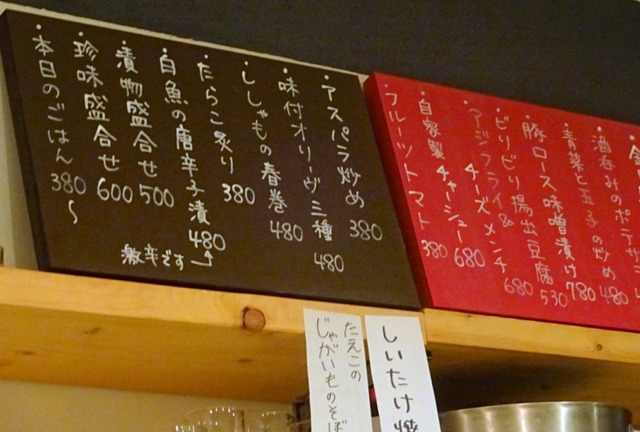 ・アスパラ炒め 380
・味付オリーヴ三種 480
・ししゃもの春巻 480
・たらこ炙り 380
・白魚の唐辛子漬 480
激辛です
・漬物盛合せ 500
・珍味盛合せ 600
・本日のごはん 380〜
・酒呑みのポテサラ 480
・青菜と玉子の炒め 780
・豚ロース味噌漬け 530
・ピリピリ揚出豆腐 680
・アジフライ&チーズメンチ 680
・自家製チャーシュー 380
・フルーツトマト
しいたけ焼
たえこの
じゃがいものそぼ